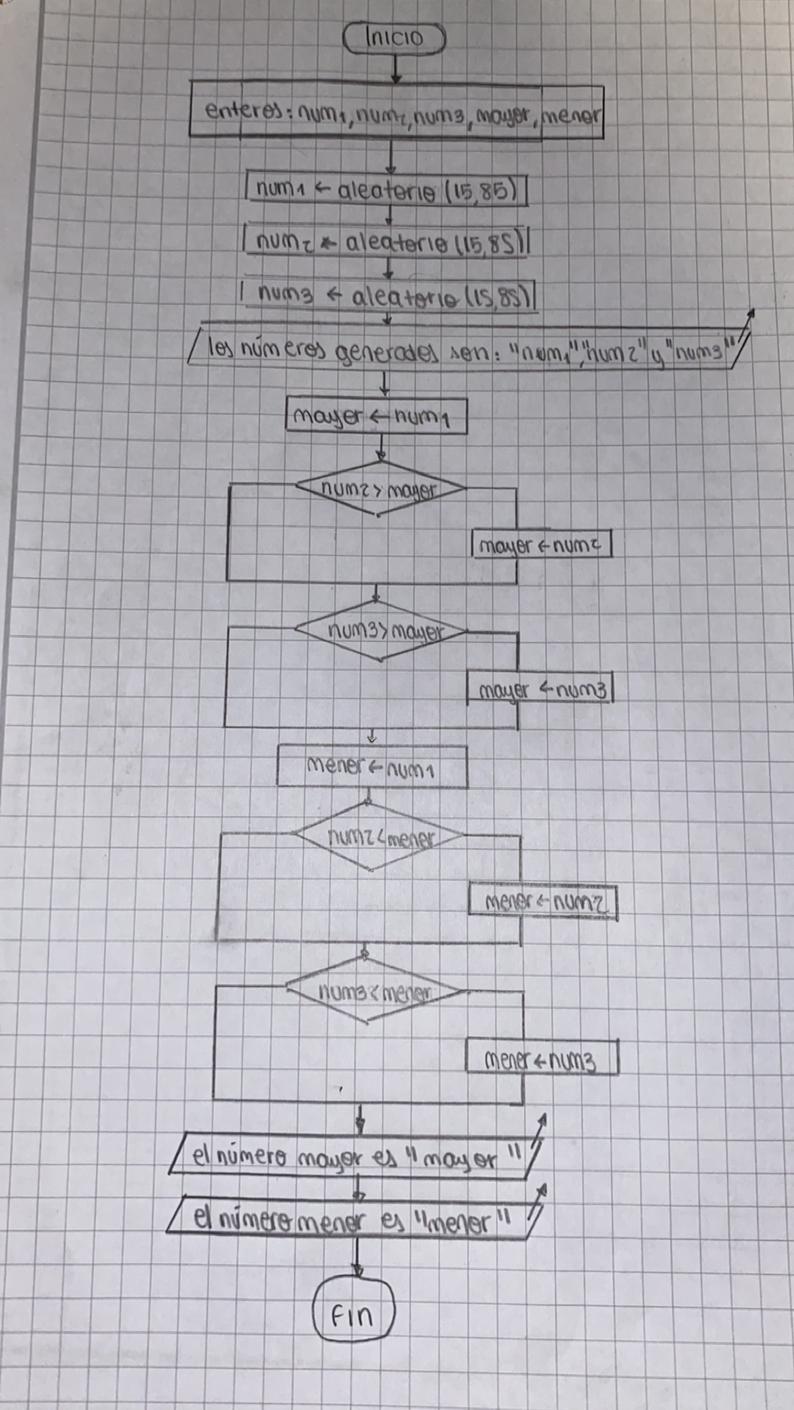 Inicio
enteros: num1, num2, num3, mayor, menor
num1 ← aleatorio (15,85)
num2 ← aleatorio (15,85)
num3 ← aleatorio (15,85)
los números generados son: "num1","num2" y "num3"
mayor ← num1
num2 > mayor
mayor ← num2
num3 > mayor
mayor ← num3
menor ← num1
num2 < menor
menor ← num2
num3 < menor
menor ← num3
el número mayor es "mayor"
el número menor es "menor"
Fin